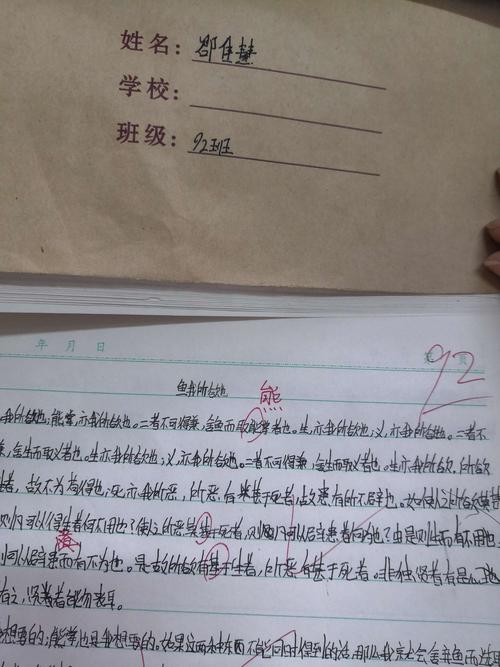 姓名：邵佳慧
学校：
班级：92班
年 月 日
92
鱼我所欲也
熊
我所欲也；熊掌，亦我所欲也。二者不可得兼，舍鱼而取熊掌者也。生，亦我所欲也；义，亦我所欲也。二者不
兼，舍生而取义者也。生亦我所欲也；义，亦我所欲也。二者不可得兼，舍生而取义者也。生亦我所欲，所欲
者，故不为苟得也；死亦我所恶，所恶有甚于死者，故患有所不辟也。如使人之所欲莫甚
则凡可以得生者何不用也？使人之所恶莫甚于死者，则凡可以辟患者何为也？由是则生而有不用也
可以辟患而有不为也。是故所欲有甚于生者，所恶有甚于死者。非独贤者有是心也
有之，贤者能勿丧耳。
想要的；熊掌也是我想要的。如果这两种东西不能同时得到的话，那么我就会舍弃鱼而选